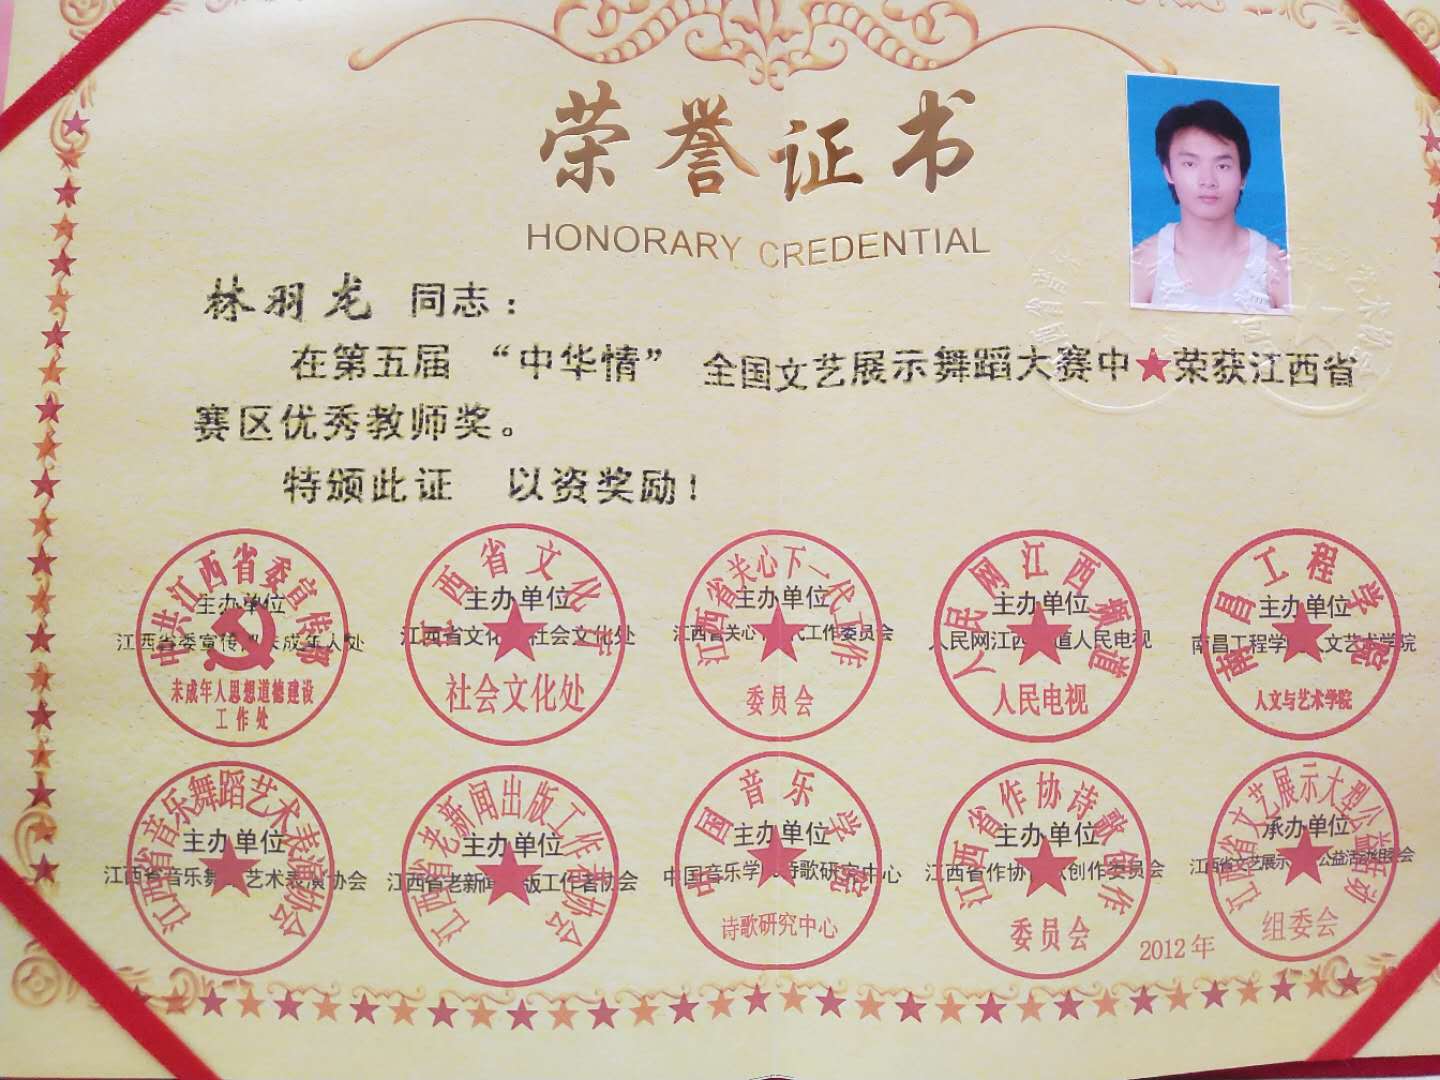 荣誉证书
HONORARY CREDENTIAL
林羽龙 同志：
在第五届 “中华情” 全国文艺展示舞蹈大赛中★荣获江西省
赛区优秀教师奖。
特颁此证 以资奖励！
中共江西省委宣传部
主办单位
未成年人思想道德建设
工作处
江西省文化厅
主办单位
江西省文化 社会文化处
社会文化处
江西省关心下一代工作
主办单位
委员会
人民网江西频道
主办单位
人民网江西 道人民电视
人民电视
南昌工程学院
主办单位
南昌工程学 人文艺术学院
人文与艺术学院
江西省音乐舞蹈艺术表演协会
主办单位
江西省音乐舞 艺术表演协会
江西省老新闻出版工作者协会
主办单位
江西省老新闻 版工作者协会
中国音乐学院
主办单位
中国音乐学 诗歌研究中心
诗歌研究中心
江西省作协诗歌创作
主办单位
江西省作协 创作委员会
委员会
江西省文艺展示大型公益活动
承办单位
江西省文艺展示
组委会
2012年